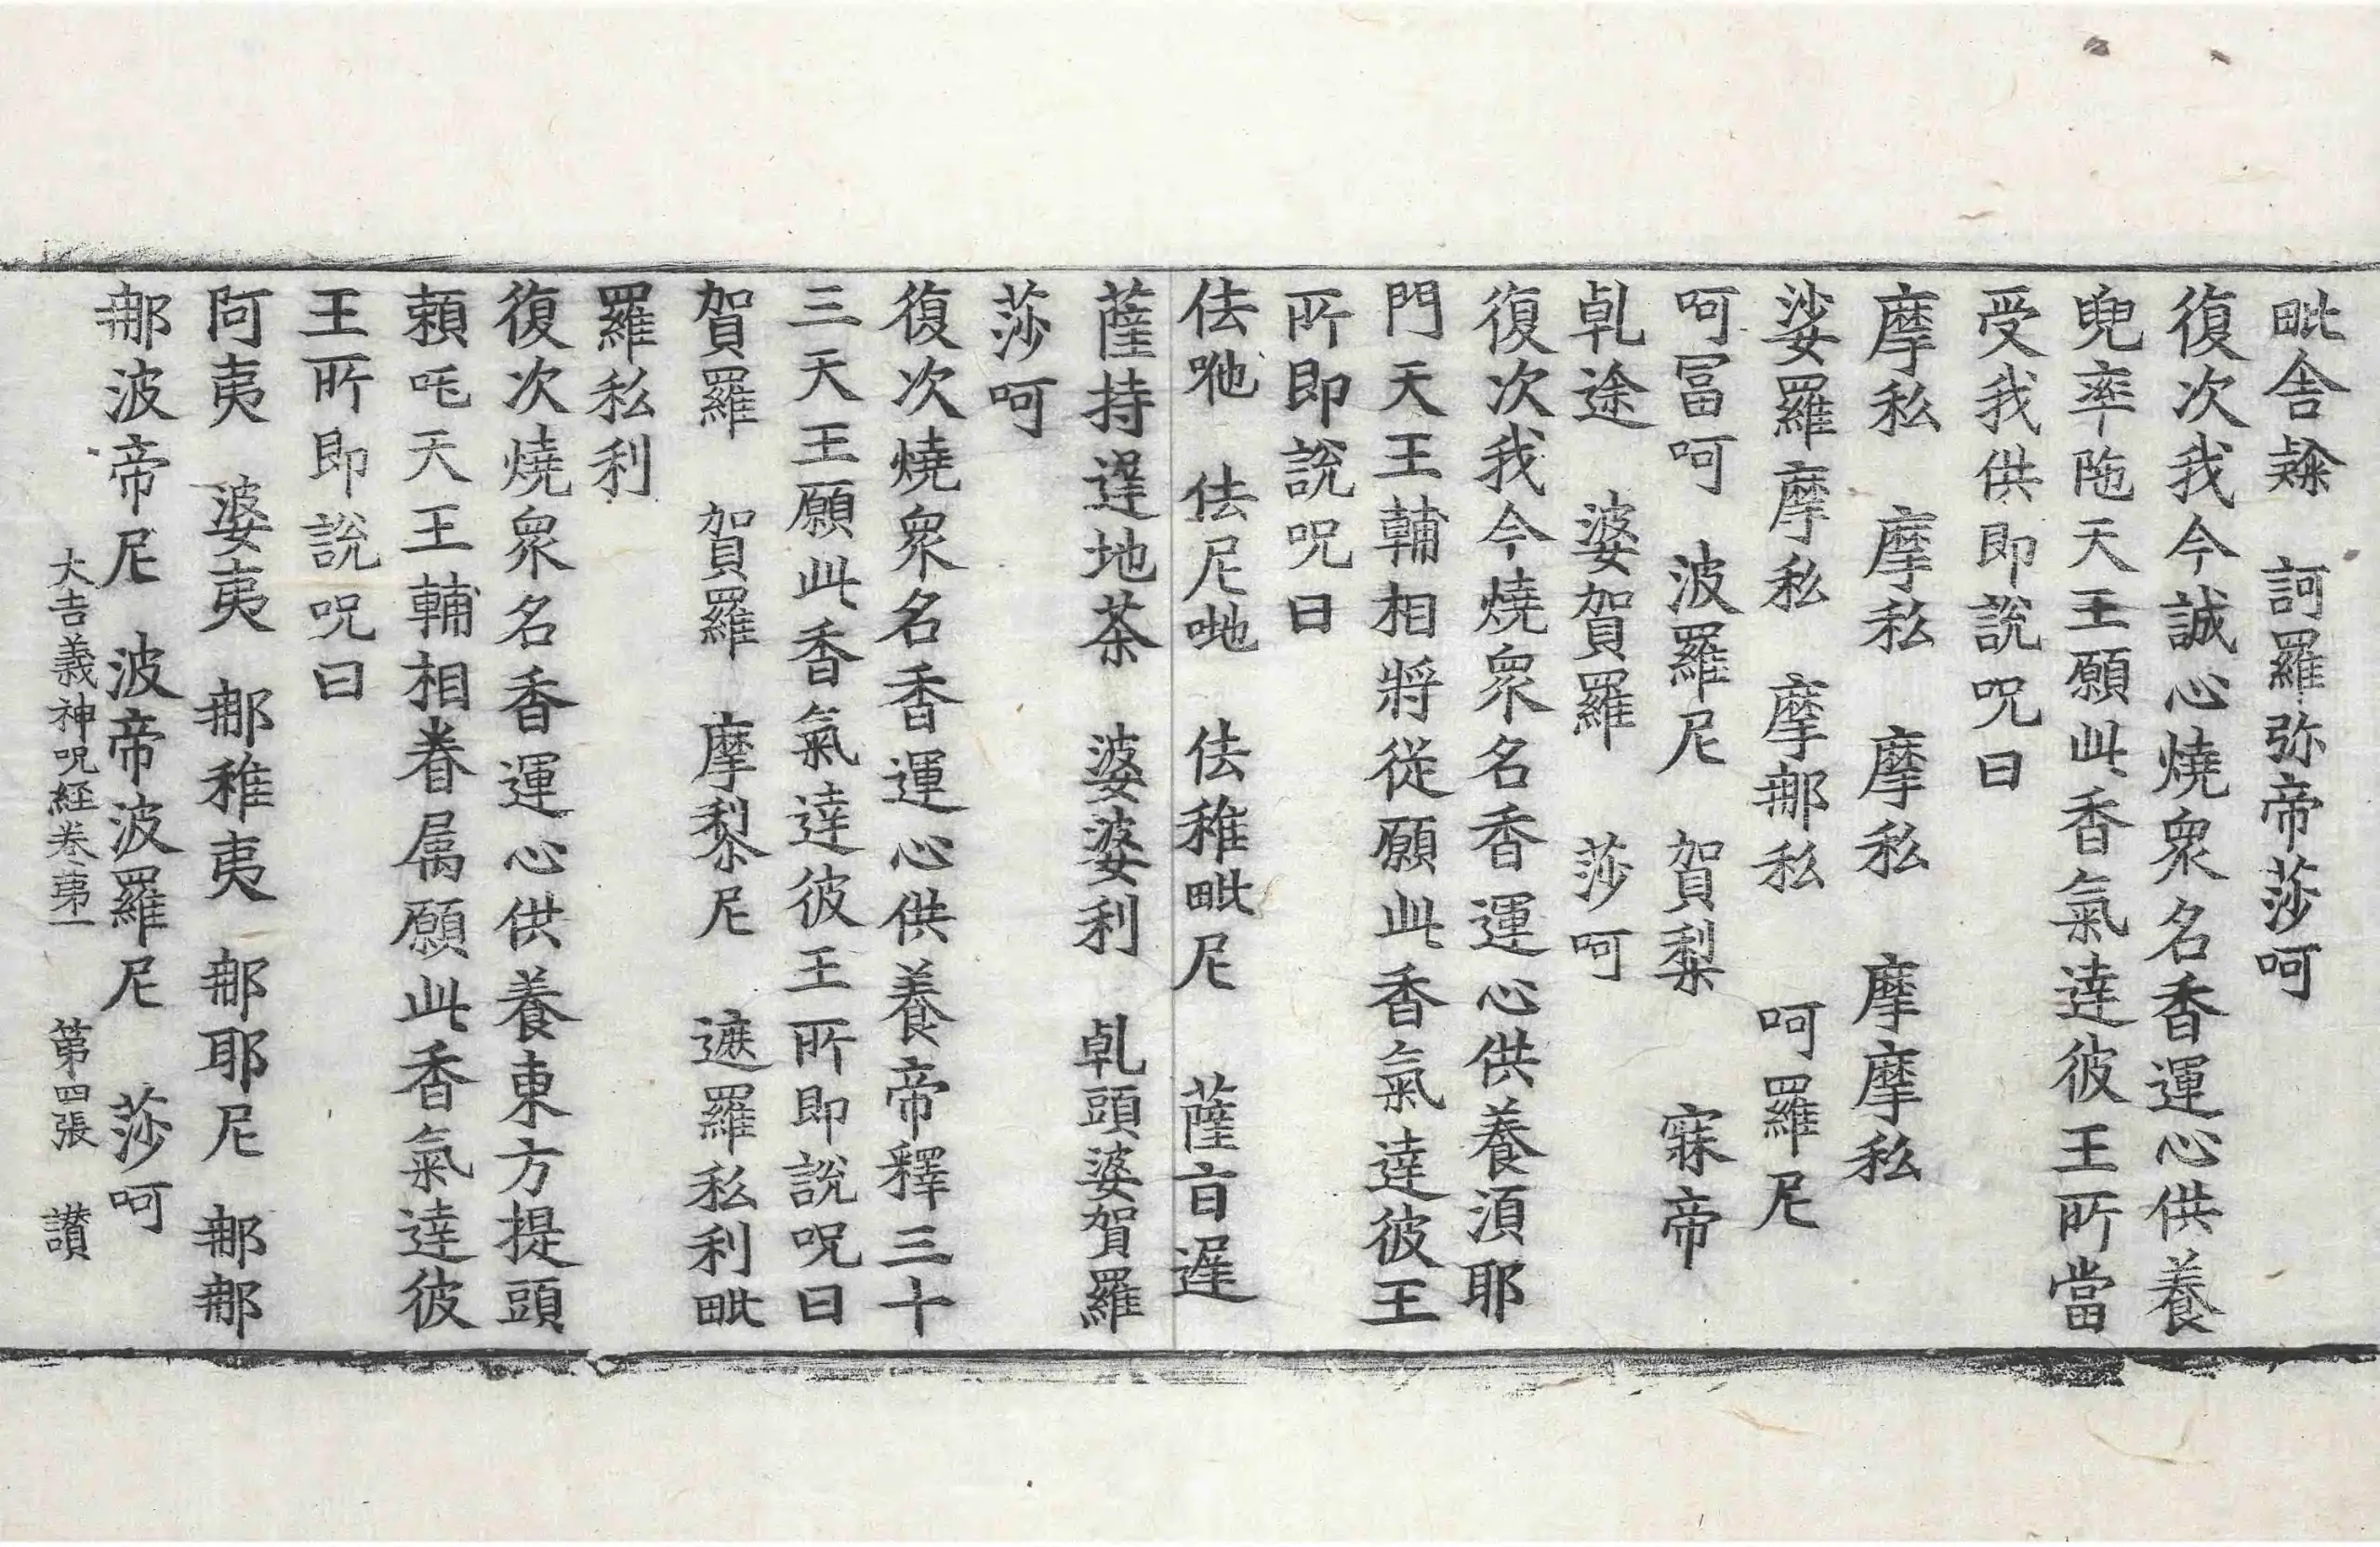 毗舍𨽻　訶羅弥帝莎呵
復次我今誠心燒衆名香運心供養
兜率陁天王願此香氣達彼王所當
受我供即說呪曰
摩私　摩私　摩私　摩摩私
娑羅摩私　摩那私　呵羅尼
呵冨呵　波羅尼　賀梨　寐帝
乹途　婆賀羅　莎呵
復次我今燒衆名香運心供養湏耶
門天王輔相將從願此香氣達彼王
所即說呪曰
佉𠯈　佉尼𠯈　佉稚毗尼　薩㫖遲
薩持遲地荼　婆婆利　乹頭婆賀羅
莎呵
復次燒衆名香運心供養帝釋三十
三天王願此香氣達彼王所即說呪曰
賀羅　賀羅　摩梨尼　遮羅私利毗
羅私利
復次燒衆名香運心供養東方提頭
頼吒天王輔相眷属願此香氣達彼
王所即說呪曰
阿夷　婆夷　那稚夷　那耶尼　那那
那波帝尼　波帝波羅尼　莎呵
大吉義神呪經卷第一　第四張　讃